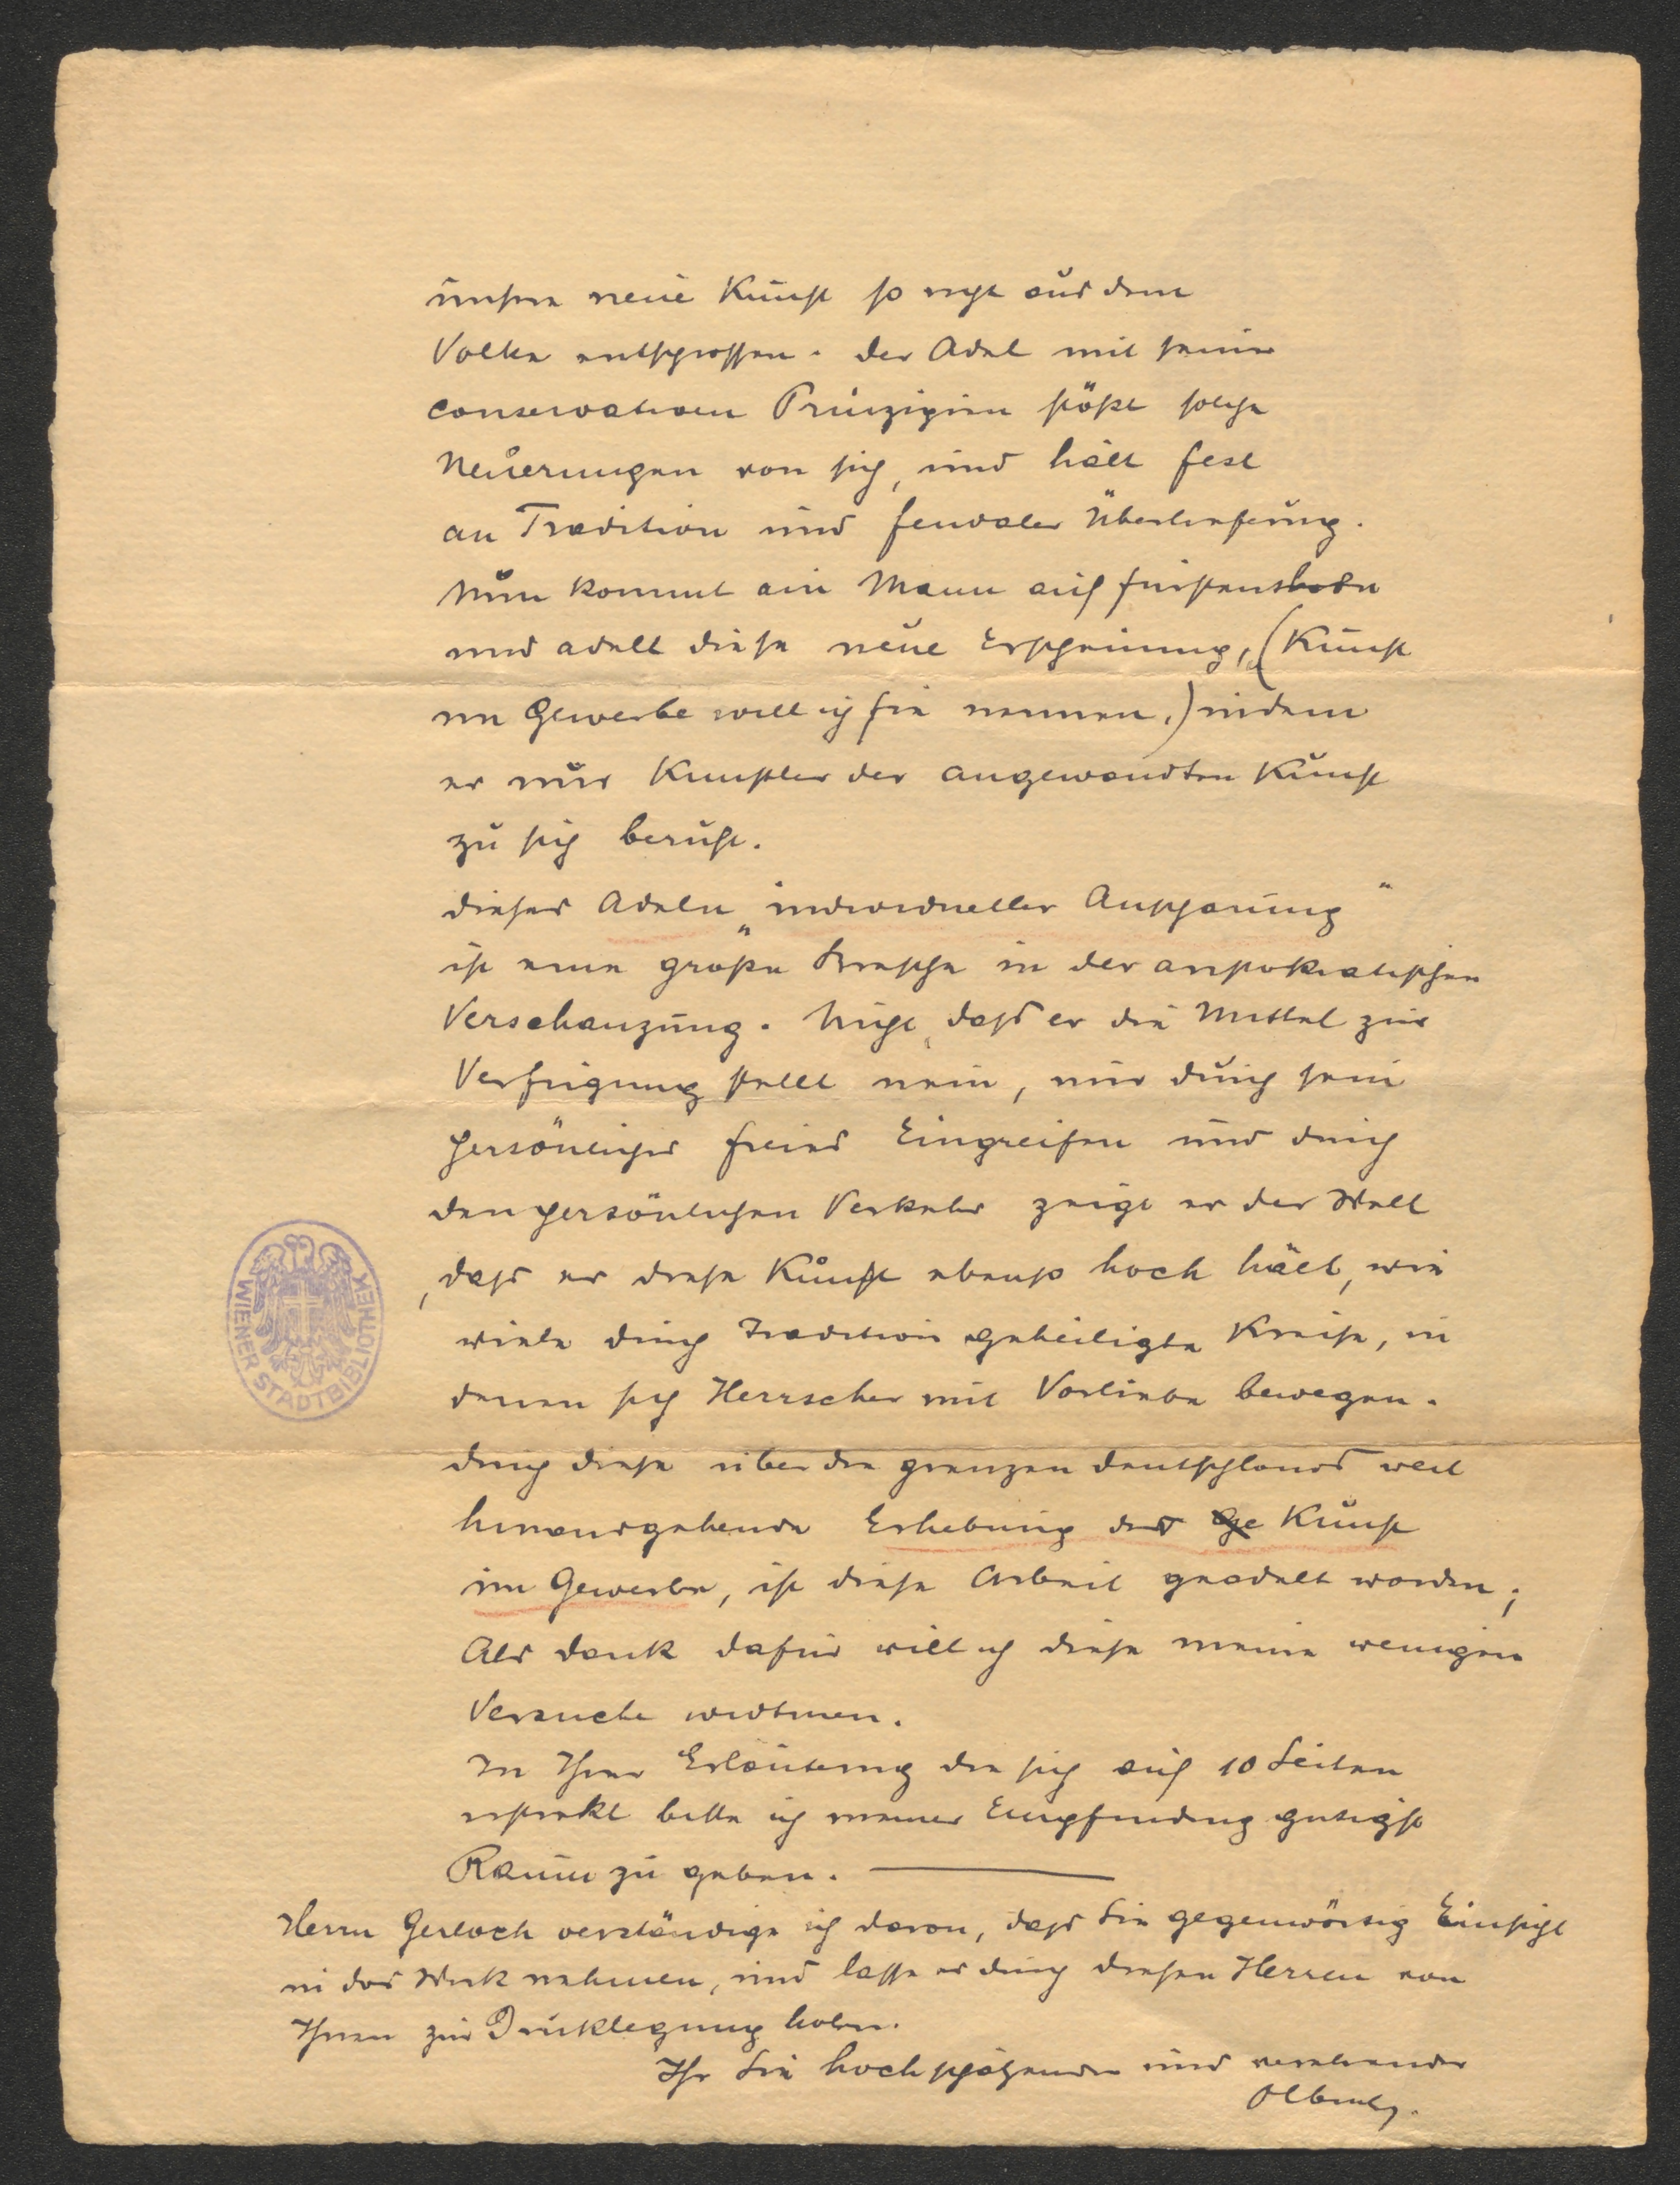 unsere neue Kunst so recht aus dem
Volke entsprossen. der Adel mit seinen
conservativen Prinzipien stößt solche
Neuerungen von sich, und hält fest
an Tradition und feudaler Überlieferung.
Nun kommt ein Mann auf
und adelt diese neue Erscheinung, (Kunst
im Gewerbe will ich sie nennen,) indem
er nur Künstler der angewandten Kunst
zu sich beruft.
dieses Adeln „individueller Anschauung“
ist eine große Bresche in der aristokratischen
Verschanzung. Nicht, daß er die Mittel zur
Verfügung stellt nein, nur durch sein
persönliches freies Eingreifen und durch
den persönlichen Verkehr zeigt er der Welt
, daß er diese Kunst ebenso hoch hält, wie
viele durch Tradition geheiligte Kreise, in
denen sich Herrscher mit Vorliebe bewegen.
durch diese über die grenzen deutschlands weit
hinausgehende Erhebung der Ge Kunst
im Gewerbe, ist diese Arbeit geadelt worden;
Als dank dafür will ich diese meine wenigen
Versuche widmen.
In Ihrer Erläuterung die sich auf 10 Seiten
erstreckt bitte ich meiner Empfindung gütigst
Raum zu geben.
Herrn Gerlach verständige ich davon, daß Sie gegenwärtig Einsicht
in das Werk nehmen, und lasse es durch diesen Herren von
Ihnen zur Drucklegung holen.
Ihr Sie hochschätzender und verehrender
Olbrich.
WIENER STADTBIBLIOTHEK